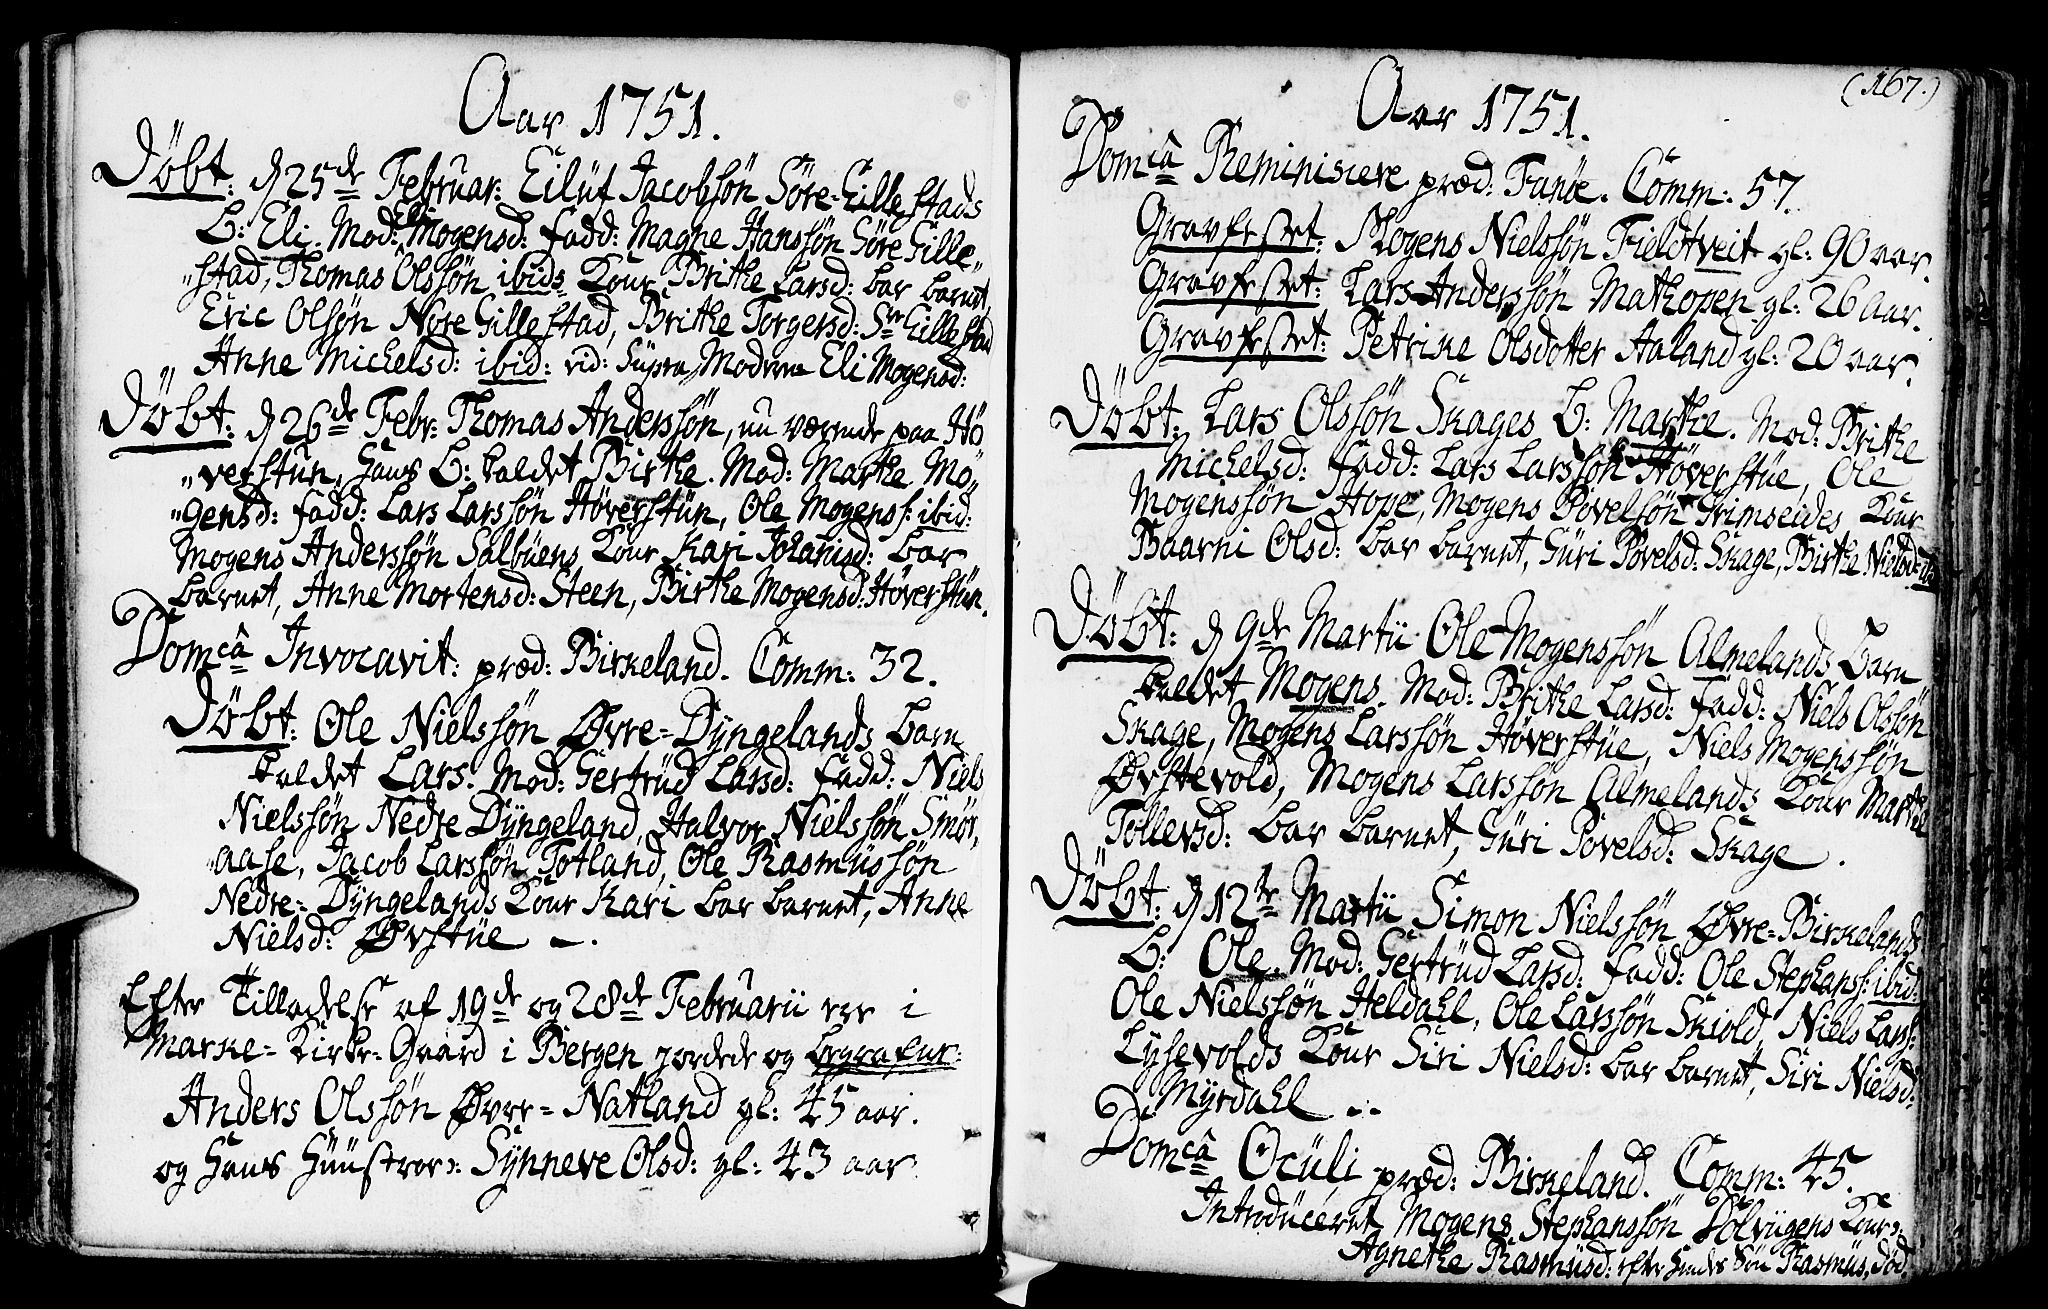 Aar 1751.
Döbt: d 25de Februar: Eilüf Jacobsön Söre-Gillestads
b: Eli. Mod: Elie Mogensd: fadd: Magne Hanssön Söre Gille„
„stad, Thomas Olssön ibids Kone Brithe Larsd: bar barnet,
Eric Olsön Nore Gillestad, Brithe Torgersd: Sre Gillestad
Anne Michelsd: ibid: vid: supra, Moderen Eli Mogensd:
Döbt: d 26de Febr: Thomas Anderssön, nu værende paa Hö
„verstün, hans b: kaldet Birthe. Mod: Marthe Mo„
„gensd: fadd: Lars Larssön Höverstün, Ole Mogens: ibid:
Mogens Anderssön Sælbüens Kone Kari Johanisd: bar
barnet, Anne Mortensd: Steen, Birthe Mogensd: Höverstün.
Domca Invocavit: præd: Birkeland. Comm: 32.
Döbt: Ole Nielssön Øvre-Dyngelands barn
kaldet Lars. Mod: Gertrüd Larsd: fadd: Niels
Nielssön Nedre Dyngeland, Halvor Nielssön Smör„
„aase, Jacob Larssön Totland, Ole Rasmüssön
Nedre-Dyngelands Kone Kari bar barnet, Anne
Nielsd: Øvstüe –.
Efter Tilladelse af 19de og 28de Februarii ere i
Marke-Kirke-Gaard i Bergen jordede og begrafne:
Anders Olssön Øvre-Natland gl: 45 aar.
og hans Hüüstroe: Synneve Olsd: gl: 43 aar.
(167.)
Aar 1751.
Domca Reminiscere præd: Fanöe. Comm: 57.
Gravfestet: Mogens Nielssön Fieldtveit gl: 90 aar.
Gravfestet: Lars Anderssön Mathopen gl: 26 aar.
Gravfestet: Petrike Olsdotter Aaland gl: 20 aar.
Döbt: Lars Olssön Skages b: Marthe. Mod: Brithe
Michelsd: fadd: Lars Larssön Höverstüe, Ole
Mogenssön Hope, Mogens Povelsön Grimseides Kone
Baarni Olsd: bar barnet, Güri Povelsd: Skage, Birthe Nielsd: ib
Döbt: d 9de Martii Ole Mogenssön Almelands barn
kaldet Mogens. Mod: Brithe Larsd: fadd: Niels Olssön
Skage, Mogens Larssön Höverstüe, Niels Mogenssön
Øvstevold, Mogens Larssön Almelands Kone Marthe
Tollevsd: bar barnet, Güri Povelsd: Skage.
Döbt: d 12te Martii Simon Nielssön Øvre-Birkelands
b: Ole. Mod: Gertrüd Larsd: fadd: Ole Stephans: ibid:
Ole Nielssön Heldahl, Ole Larssön Skiold, Niels Larss:
Lysevolds Kone Siri Nielsd: bar barnet, Siri Nielsd:
Myrdahl –.
Domca Ocüli præd: Birkeland. Comm: 45.
Introdüceret Mogens Stephanssön Dolvigens Kone:
Agnethe Rasmüsd: efter hindes Sön Rasmüs, död